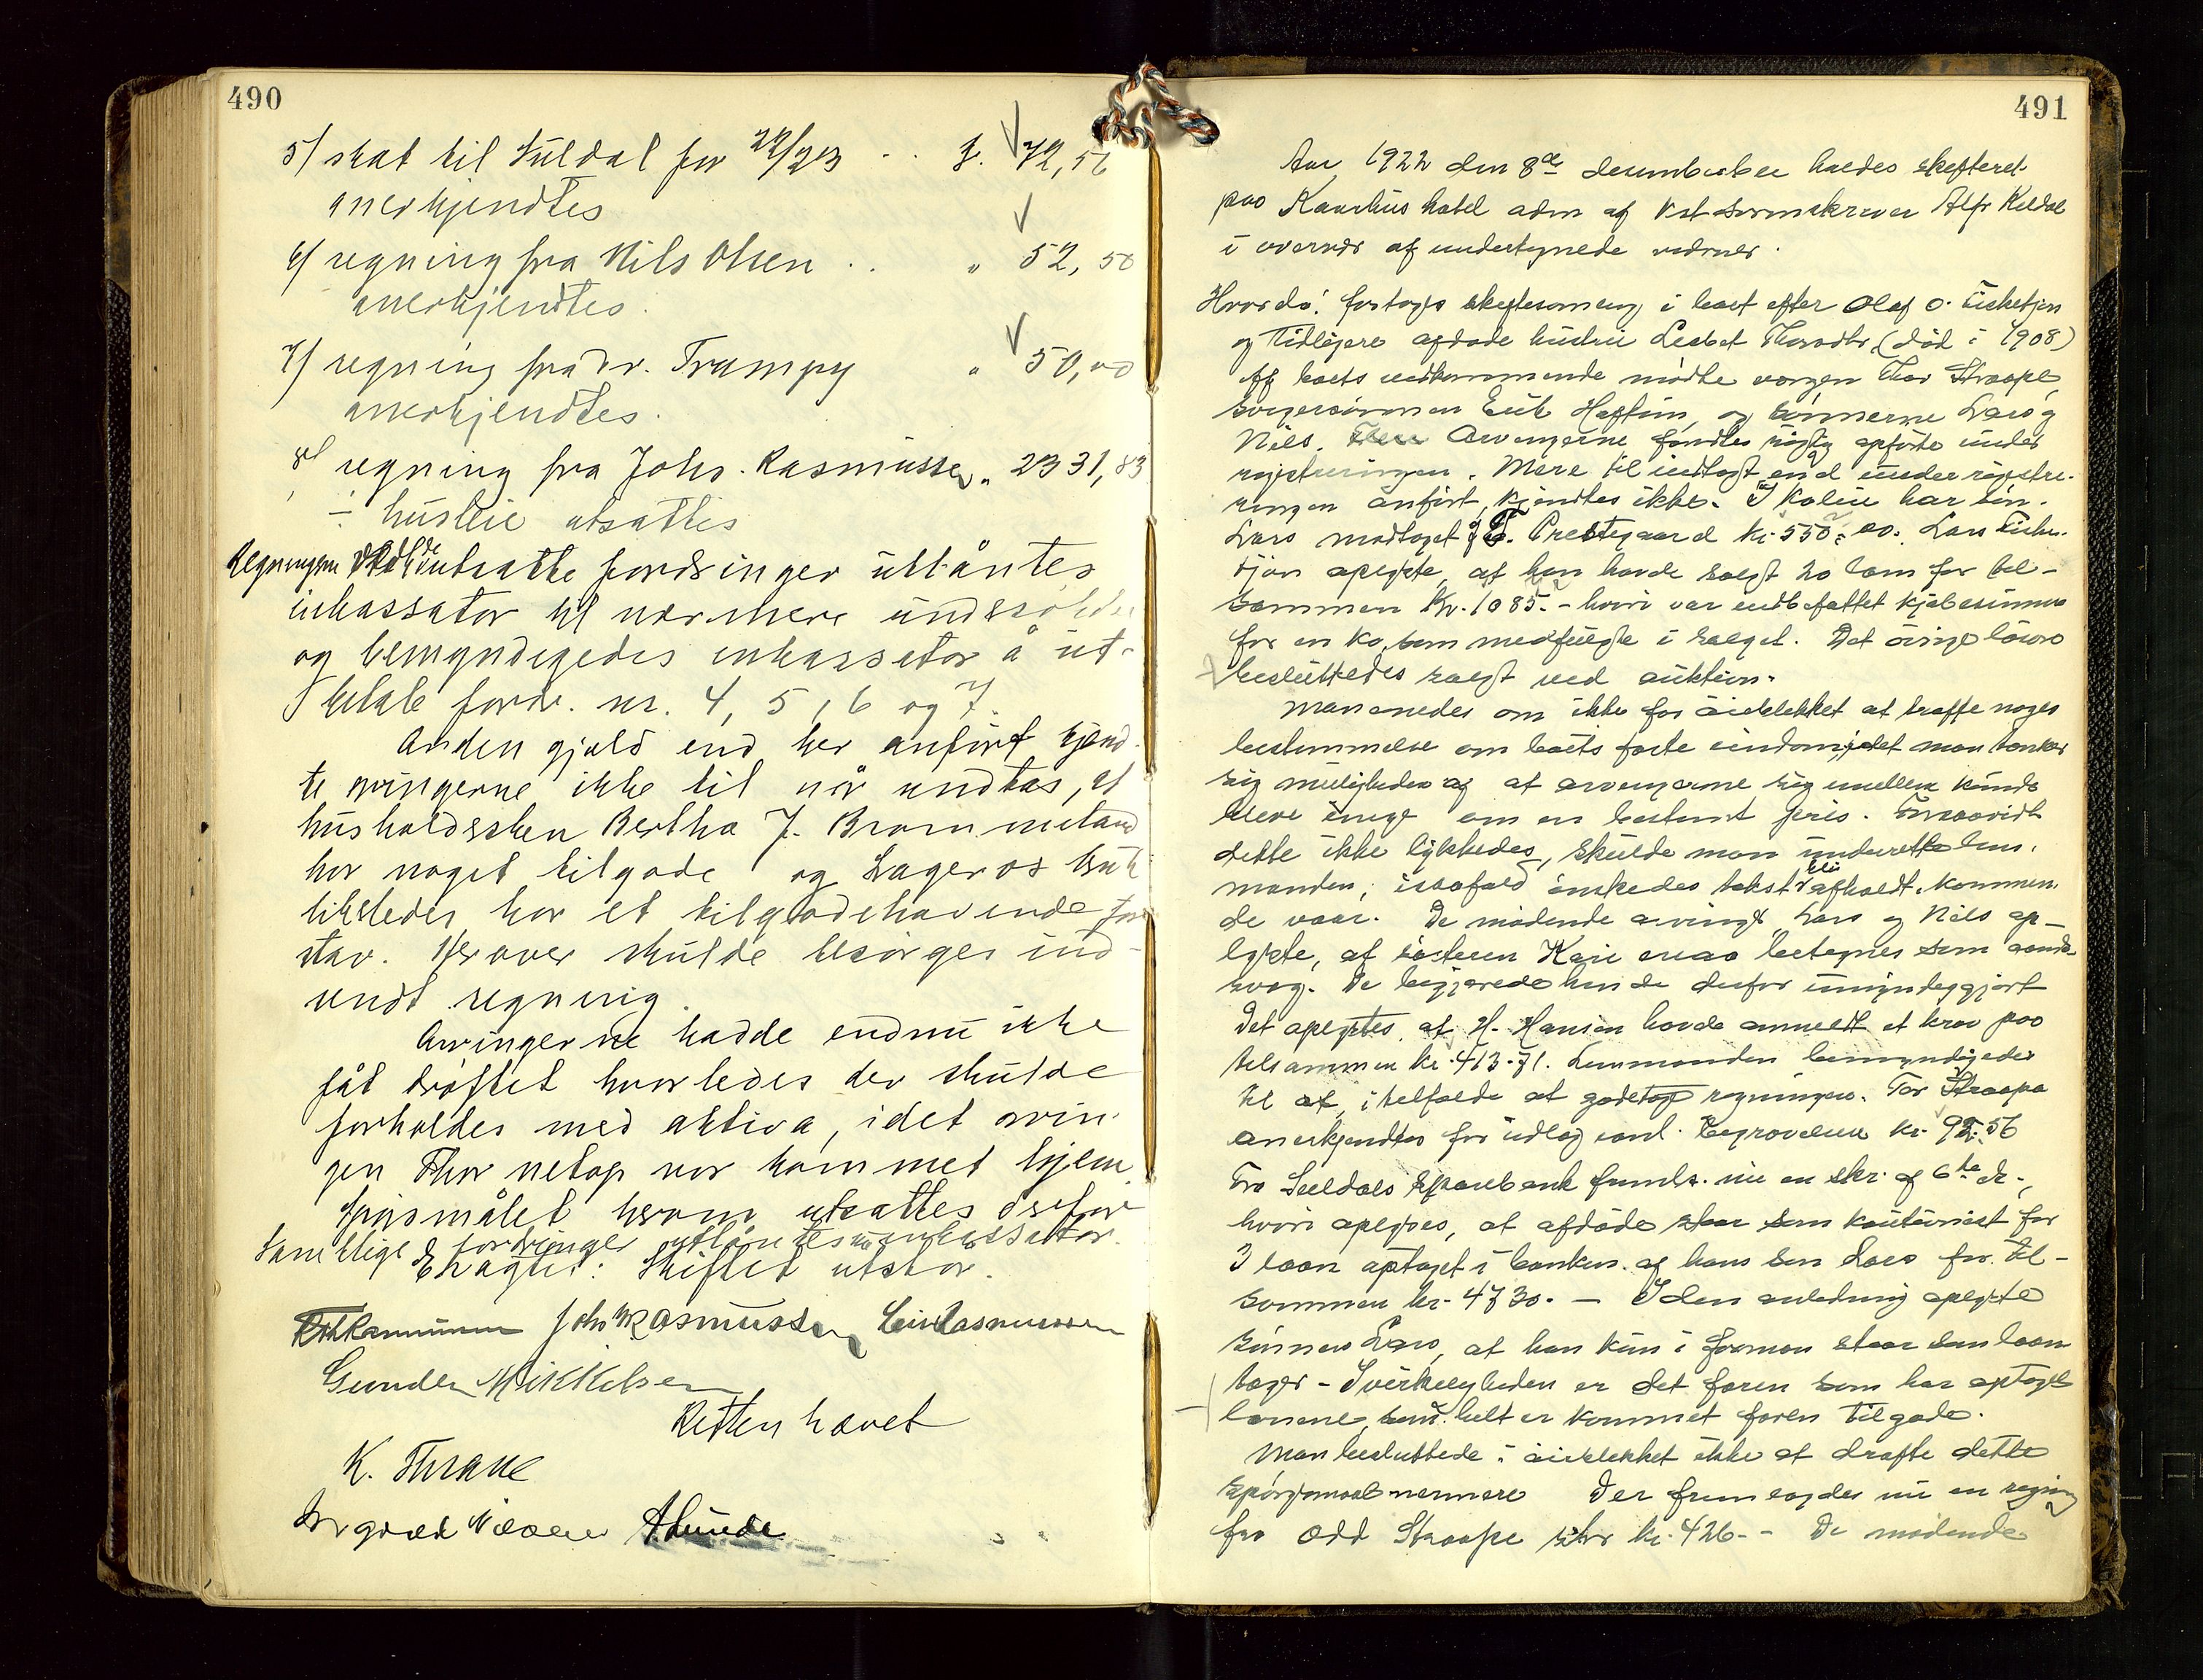 490
5/ skat til Suldal for 22/23 . . . 72,56
anerkjendtes
6/ regning fra Nils Olsen . . " 52,50
anerkjendtes.
7/ regning fra dr. Trampy " 50,00
anerkjendtes.
8/ regning fra Johs. Rasmussen " 2331,83
÷ husleie utsattes
utsatte fordringer utlåntes
inkassator til nærmere undersøkelse
og bemyndigedes inkassator å ut-
betale fordr. nr. 4, 5, 6 og 7.
Anden gjæld end her anført kjend-
te arvingerne ikke til når undtas, at
husholdersken Bertha J. Brommeland
har noget tilgode og Lageros
likeledes har et tilgodehavende for
stav. Herover skulde besørges ind-
sendt regning.
Arvingerne hadde endnu ikke
fåt drøftet hvorledes der skulde
forholdes med aktiva, idet arvin-
gen Thor netop var kommet hjem.
Spørsmålet herom utsattes derfor
Samtlige fordringer utlåntes inkassator.
Eragtet: Skiftet utstår.
Johs Rasmussen
Gunder Mikkelsen
Retten hævet
K. Thrane
A Lunde
491
Aar 1922 den 8de desember holdes skifteret
paa hotel adm af
i overvær af undertegnede vidner.
Hvorda: foretoges skiftesamling i boet efter Olaf O.
og tidligere afdøde hustru Lisbet Thorsdtr. (død i 1908)
Af boets vedkommende mødte vergen Thor Straape,
svigersønnen Erik og sønnerne Lars og
Nils. Arvingerne fandtes rigtig opførte under
registreringen. Mere til indtægt end under registre-
ringen anført, kjendtes ikke. I har søn.
Lars modtaget af T. Prestegaard kr. 550,00. Lars
opgyste, at han havde solgt 20 lam for til-
sammen Kr. 1085.- hvori var indbefattet kjøbesummen
for en ko, som medfulgte i salget. Det øvrige løsøre
besluttedes solgt ved auktion.
Man enedes om ikke for øieblikket at træffe nogen
bestemmelse om boets faste eiendom, idet man tænker
sig muligheden af at arvingerne sig imellem kunde
bleve enige om en bestemt pris. Forsaavidt
dette ikke lykkedes, skulde man underrette lens-
manden; isaafald ønskedes takst bli afholdt kommen-
de vaar. De mødende arvinger Lars og Nils op-
lyste, at søsteren Kari maa betegnes som aands-
svag. De begjærede hende derfor umyndiggjort
Det oplystes, at H. Hansen havde anmeldt et krav paa
tilsammen kr. 413.71. Lensmanden bemyndigedes
til at, i tilfælde at godtage regningen. Tor Straape
anerkjendtes for udlæg Begravelsen kr. 92.56
Fra Suldals Sparebank fremla. nu en skr. af 6te ds.,
hvori oplyses, at afdøde staar som kautionist for
3 laan optaget i banken af hans søn Lars for til-
sammen kr. 4730. — I den anledning oplyste
sønnen Lars, at han kun i formen staar som laan-
tager - I virkeligheden er det faren som har optaget
lånene, som helt er kommet faren tilgode.
Man besluttede i øieblikket ikke at drøfte dette
spørgsmaal nærmere Der fremlagdes nu en regning
fra Odd Straape stor kr. 426.- De mødende